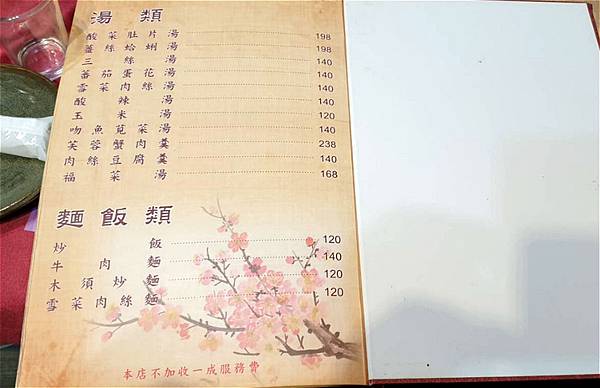 湯類
酸菜肚片湯 198
薑絲蛤蜊湯 198
三絲湯 140
蕃茄蛋花湯 140
雪菜肉絲湯 140
酸辣湯 140
玉米湯 120
吻魚莧菜湯 140
芙蓉蟹肉羹 238
肉絲豆腐羹 140
福菜湯 168
麵飯類
炒飯 120
牛肉麵 140
木須炒麵 120
雪菜肉絲麵 120
本店不加收一成服務費